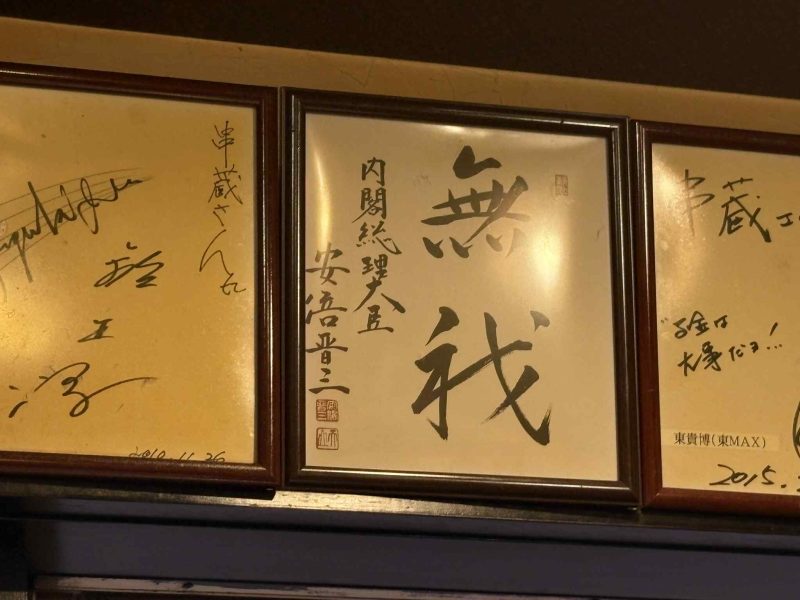 串蔵さん江
2010.11.26
無我
内閣総理大臣
安倍晋三
串蔵江
お金は
大事だヨ!!
東貴博(東MAX)
2015.